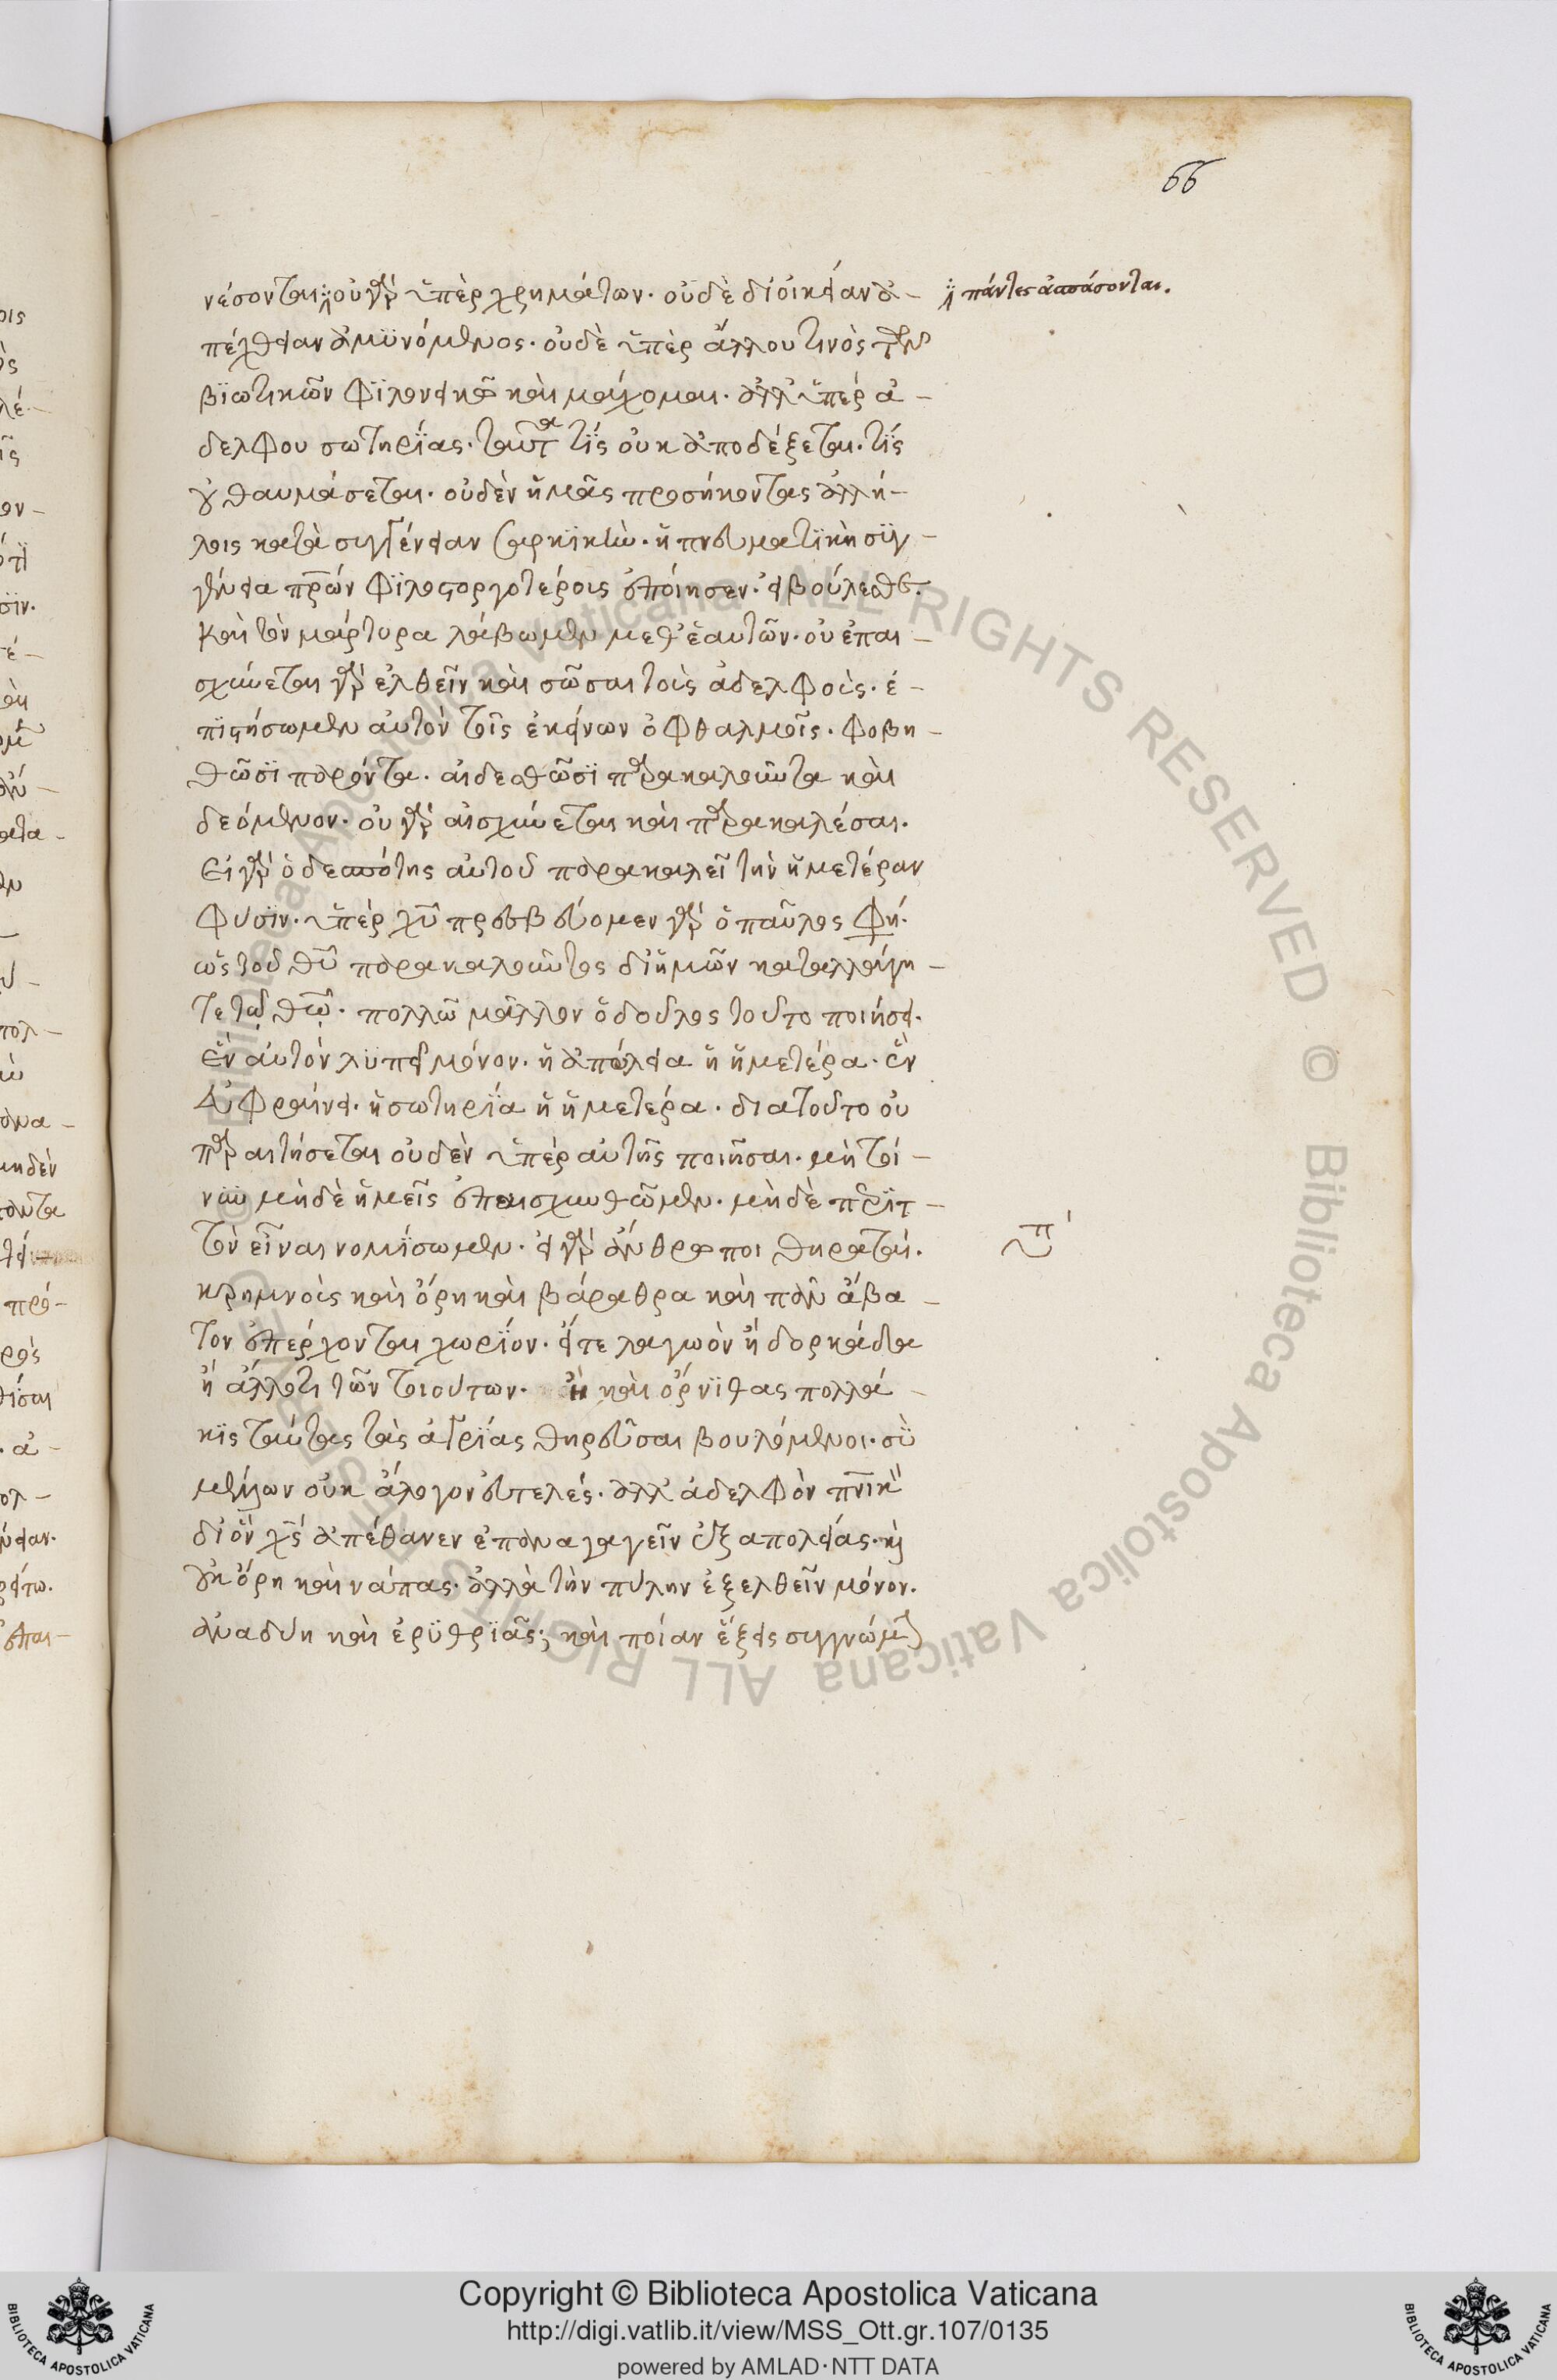 66
νέσονται· οὐ γὰρ ὑπὲρ χρημάτων. οὐδὲ διοικεῖαν ἀ- πάντες ἀσπάσονται.
πέχθειαν ἀμυνόμενος. οὐδὲ ὑπὲρ ἄλλου τινὸς τῶν
βϊωτικῶν φϊλονεικῶ καὶ μάχομαι. ἀλλ' ὑπὲρ ἀ-
δελφου σωτηρίας. ταῦτα τίς οὐκ ἀποδέξεται. τίς
οὐ θαυμάσεται. οὐδὲν ἡμᾶς προσήκοντας ἀλλή-
λοις κατὰ συγγένειαν σαρκϊκὴν. ἡ πνευματϊκὴ συγ-
γένεια πρων φϊλοστοργοτέροις ἐποίησεν. εἰ βούλεσθε.
καὶ τὸν μάρτυρα λάβωμεν μεθ' ἑαυτῶν. οὐ ἐπαι-
σχύνεται γὰρ ἐλθεῖν καὶ σῶσαι τοὺς ἀδελφοὺς. ἐ-
πϊστήσωμεν αὐτὸν τοῖς ἐκείνων ὀφθαλμοῖς. φοβη-
θῶσϊ παρόντα. αἰδεσθῶσϊ παρακαλοῦντα καὶ
δεόμενον. οὐ γὰρ αἰσχύνεται καὶ παρακαλέσαι.
Εἰ γὰρ ὁ δεσπότης αὐτοῦ παρακαλεῖ τὴν ἡμετέραν
φύσϊν. ὑπὲρ χυ πρεσβεύομεν γὰρ ὁ παῦλος φη.
ὡς τοῦ θυ παρακαλοῦντος δι' ἡμῶν καταλλάγη-
τε τῷ θω. πολλῶ μᾶλλον ὁ δοῦλος τοῦτο ποιήσει.
ἓν αὐτὸν λυπεῖ μόνον. ἡ ἀπώλεια ἡ ἡμετέρα. ἓν
εὐφραίνει. ἡ σωτηρία ἡ ἡμετέρα. διατοῦτο οὐ
παραιτήσεται οὐδὲν ὑπὲρ αὐτῆς ποιῆσαι. μὴ τοί-
νυν μὴδὲ ἡμεῖς ἐπαισχυνθῶμεν. μὴδὲ περϊτ-
τὸν εἶναι νομίσωμεν. εἰ γὰρ ἄνθρωποι θηραταὶ.
κρημνοὺς καὶ ὄρη καὶ βάραθρα καὶ πᾶν ἄβα-
τον ἐπέρχονται χωρίον. εἴτε λαγωὸν ἢ δορκάδα
ἢ ἄλλοτι τῶν τοιούτων. ἢ καὶ ὄρνϊθας πολλά-
κϊς ταύτας τὰς ἀγρίας θηρεῦσαι βουλόμενοι. σὺ
μέλλων οὐκ ἄλογον εὐτελές. ἀλλ' ἀδελφὸν πνικὸν
δι' ὃν χς ἀπέθανεν ἐπαναγαγεῖν ἐξ απολείας. καὶ
οὐκ ὄρη καὶ νάπας. ἀλλὰ τὴν πύλην ἐξελθεῖν μόνον.
ἀναδύη καὶ ἐρϋθρϊᾶς; καὶ ποίαν ἕξεις συγγνώμην
Copyright © Biblioteca Apostolica Vaticana
http://digi.vatlib.it/view/MSS_Ott.gr.107/0135
powered by AMLAD·NTT DATA